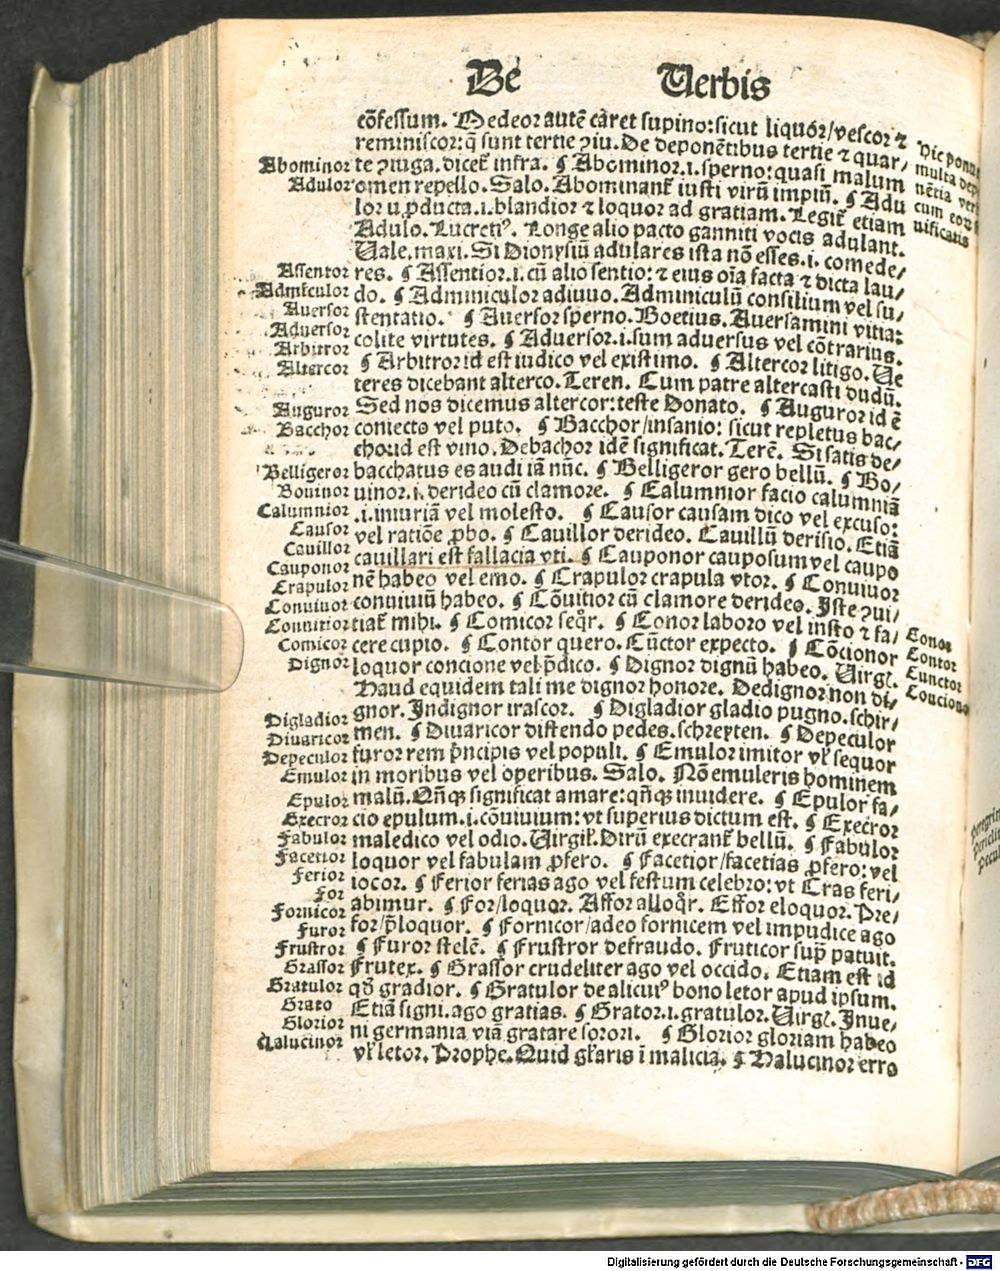 De Verbis
cōfessum. Medeor autē caret supino:sicut liquor/vescor ⁊
reminiscor:q̄ sunt tertie ꝯiu. De deponētibus tertie ⁊ quar/
te ꝯiuga. dicet᷑ infra. ¶ Abominor.i.sperno:quasi malum
omen repello. Salo. Abominant᷑ iusti virū impiū. ¶ Adu
lor u ꝓducta.i.blandior ⁊ loquor ad gratiam. Legit᷑ etiam
Adulo. Lucretiꝰ. Longe alio pacto ganniti vocis adulant.
Uale. maxi. Si Dionysiū adulares ista nō esses.i. comede/
res. ¶ Assentior.i. cū alio sentio: ⁊ eius oīa facta ⁊ dicta lau/
do. ¶ Adminiculor adiuuo. Adminiculū consilium vel su/
stentatio. ¶ Auersor sperno. Boetius. Auersamini vitia:
colite virtutes. ¶ Aduersor.i.sum aduersus vel cōtrarius.
¶ Arbitror id est iudico vel existimo. ¶ Altercor litigo. Ue
teres dicebant alterco. Teren. Cum patre altercasti dudū.
Sed nos dicemus altercor: teste Donato. ¶ Auguror id ē
coniecto vel puto. ¶ Bacchor/insanio: sicut repletus bac/
cho:id est vino. Debachor idē significat. Terē. Si satis de/
bacchatus es audi iā nūc. ¶ Belligeror gero bellū. ¶ Bo/
uinor.i. derideo cū clamore. ¶ Calumnior facio calumniā
.i.iniuriā vel molesto. ¶ Causor causam dico vel excuso:
vel ratiōe ꝓbo. ¶ Cauillor derideo. Cauillū derisio. Etiā
cauillari est fallacia vti. ¶ Cauponor cauposum vel caupo
nē habeo vel emo. ¶ Crapulor crapula vtor. ¶ Conuiuor
conuiuiū habeo. ¶ Cōuitior cū clamore derideo. Iste ꝯui/
tiat᷑ mihi. ¶ Comicor seqr̄. ¶ Conor laboro vel insto ⁊ fa/
cere cupio. ¶ Contor quero. Cūctor expecto. ¶ Cōcionor
loquor concione vel p̄dico. ¶ Dignor dignū habeo. Uirgl᷑.
Haud equidem tali me dignor honore. Dedignor non di/
gnor. Indignor irascor. ¶ Digladior gladio pugno. schir/
men. ¶ Diuaricor distendo pedes. schreyten. ¶ Depeculor
furor rem p̄ncipis vel populi. ¶ Emulor imitor vl᷑ sequor
in moribus vel operibus. Salo. Nō emuleris hominem
malū. Qn̄qꝫ significat amare: qn̄qꝫ inuidere. ¶ Epulor fa/
cio epulum.i.cōuiuium: vt superius dictum est. ¶ Execror
maledico vel odio. Uirgil᷑. Dirū execrant᷑ bellū. ¶ Fabulor
loquor vel fabulam ꝓfero. ¶ Facetior/facetias ꝓfero: vel
iocor. ¶ Ferior ferias ago vel festum celebro: vt Cras feri/
abimur. ¶ For/loquor. Affor alloqr̄. Effor eloquor. Pre/
for/p̄loquor. ¶ Fornicor/adeo fornicem vel impudice ago
¶ Furor stelē. ¶ Frustror defraudo. Fruticor sup̄ patuit.
Frutex. ¶ Grassor crudeliter ago vel occido. Etiam est id
qd̄ gradior. ¶ Gratulor de alicuiꝰ bono letor apud ipsum.
Etiā signi. ago gratias. ¶ Grator.i.gratulor. Uirgl᷑. Inue/
ni germania viā gratare sorori. ¶ Glorior gloriam habeo
vl᷑ letor. Prophe. Quid gl᷑aris ī malicia. ¶ Halucinor erro
Abominor
Adulor
Assentor
Admīculor
Auersor
Aduersor
Arbitror
Altercor
Auguror
Bacchor
Belligeror
Bouinor
Calumnior
Causor
Cauillor
Cauponor
Crapulor
Conuiuor
Conuitior
Comicor
Dignor
Digladior
Diuaricor
Depeculor
Emulor
Epulor
Execror
Fabulor
Facetior
Ferior
For
Fornicor
Furor
Frustror
Grassor
Gratulor
Grato
Glorior
Halucinor
Hic ponu
multa dep
nētia ver
cum eorꝫ s
nificatis
Conor
Contor
Cunctor
Conciono
Peregrin
Periclit
Pecul
Digitalisierung gefördert durch die Deutsche Forschungsgemeinschaft - DFG